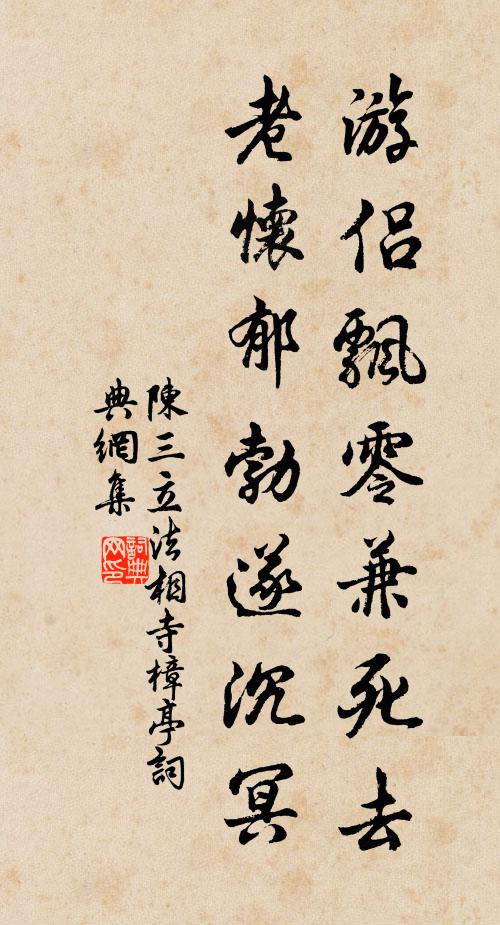 游侣飄零兼死去
老懷郁勃遂沉冥
陳三立法相寺樟亭詞
典網集
詞典
网印